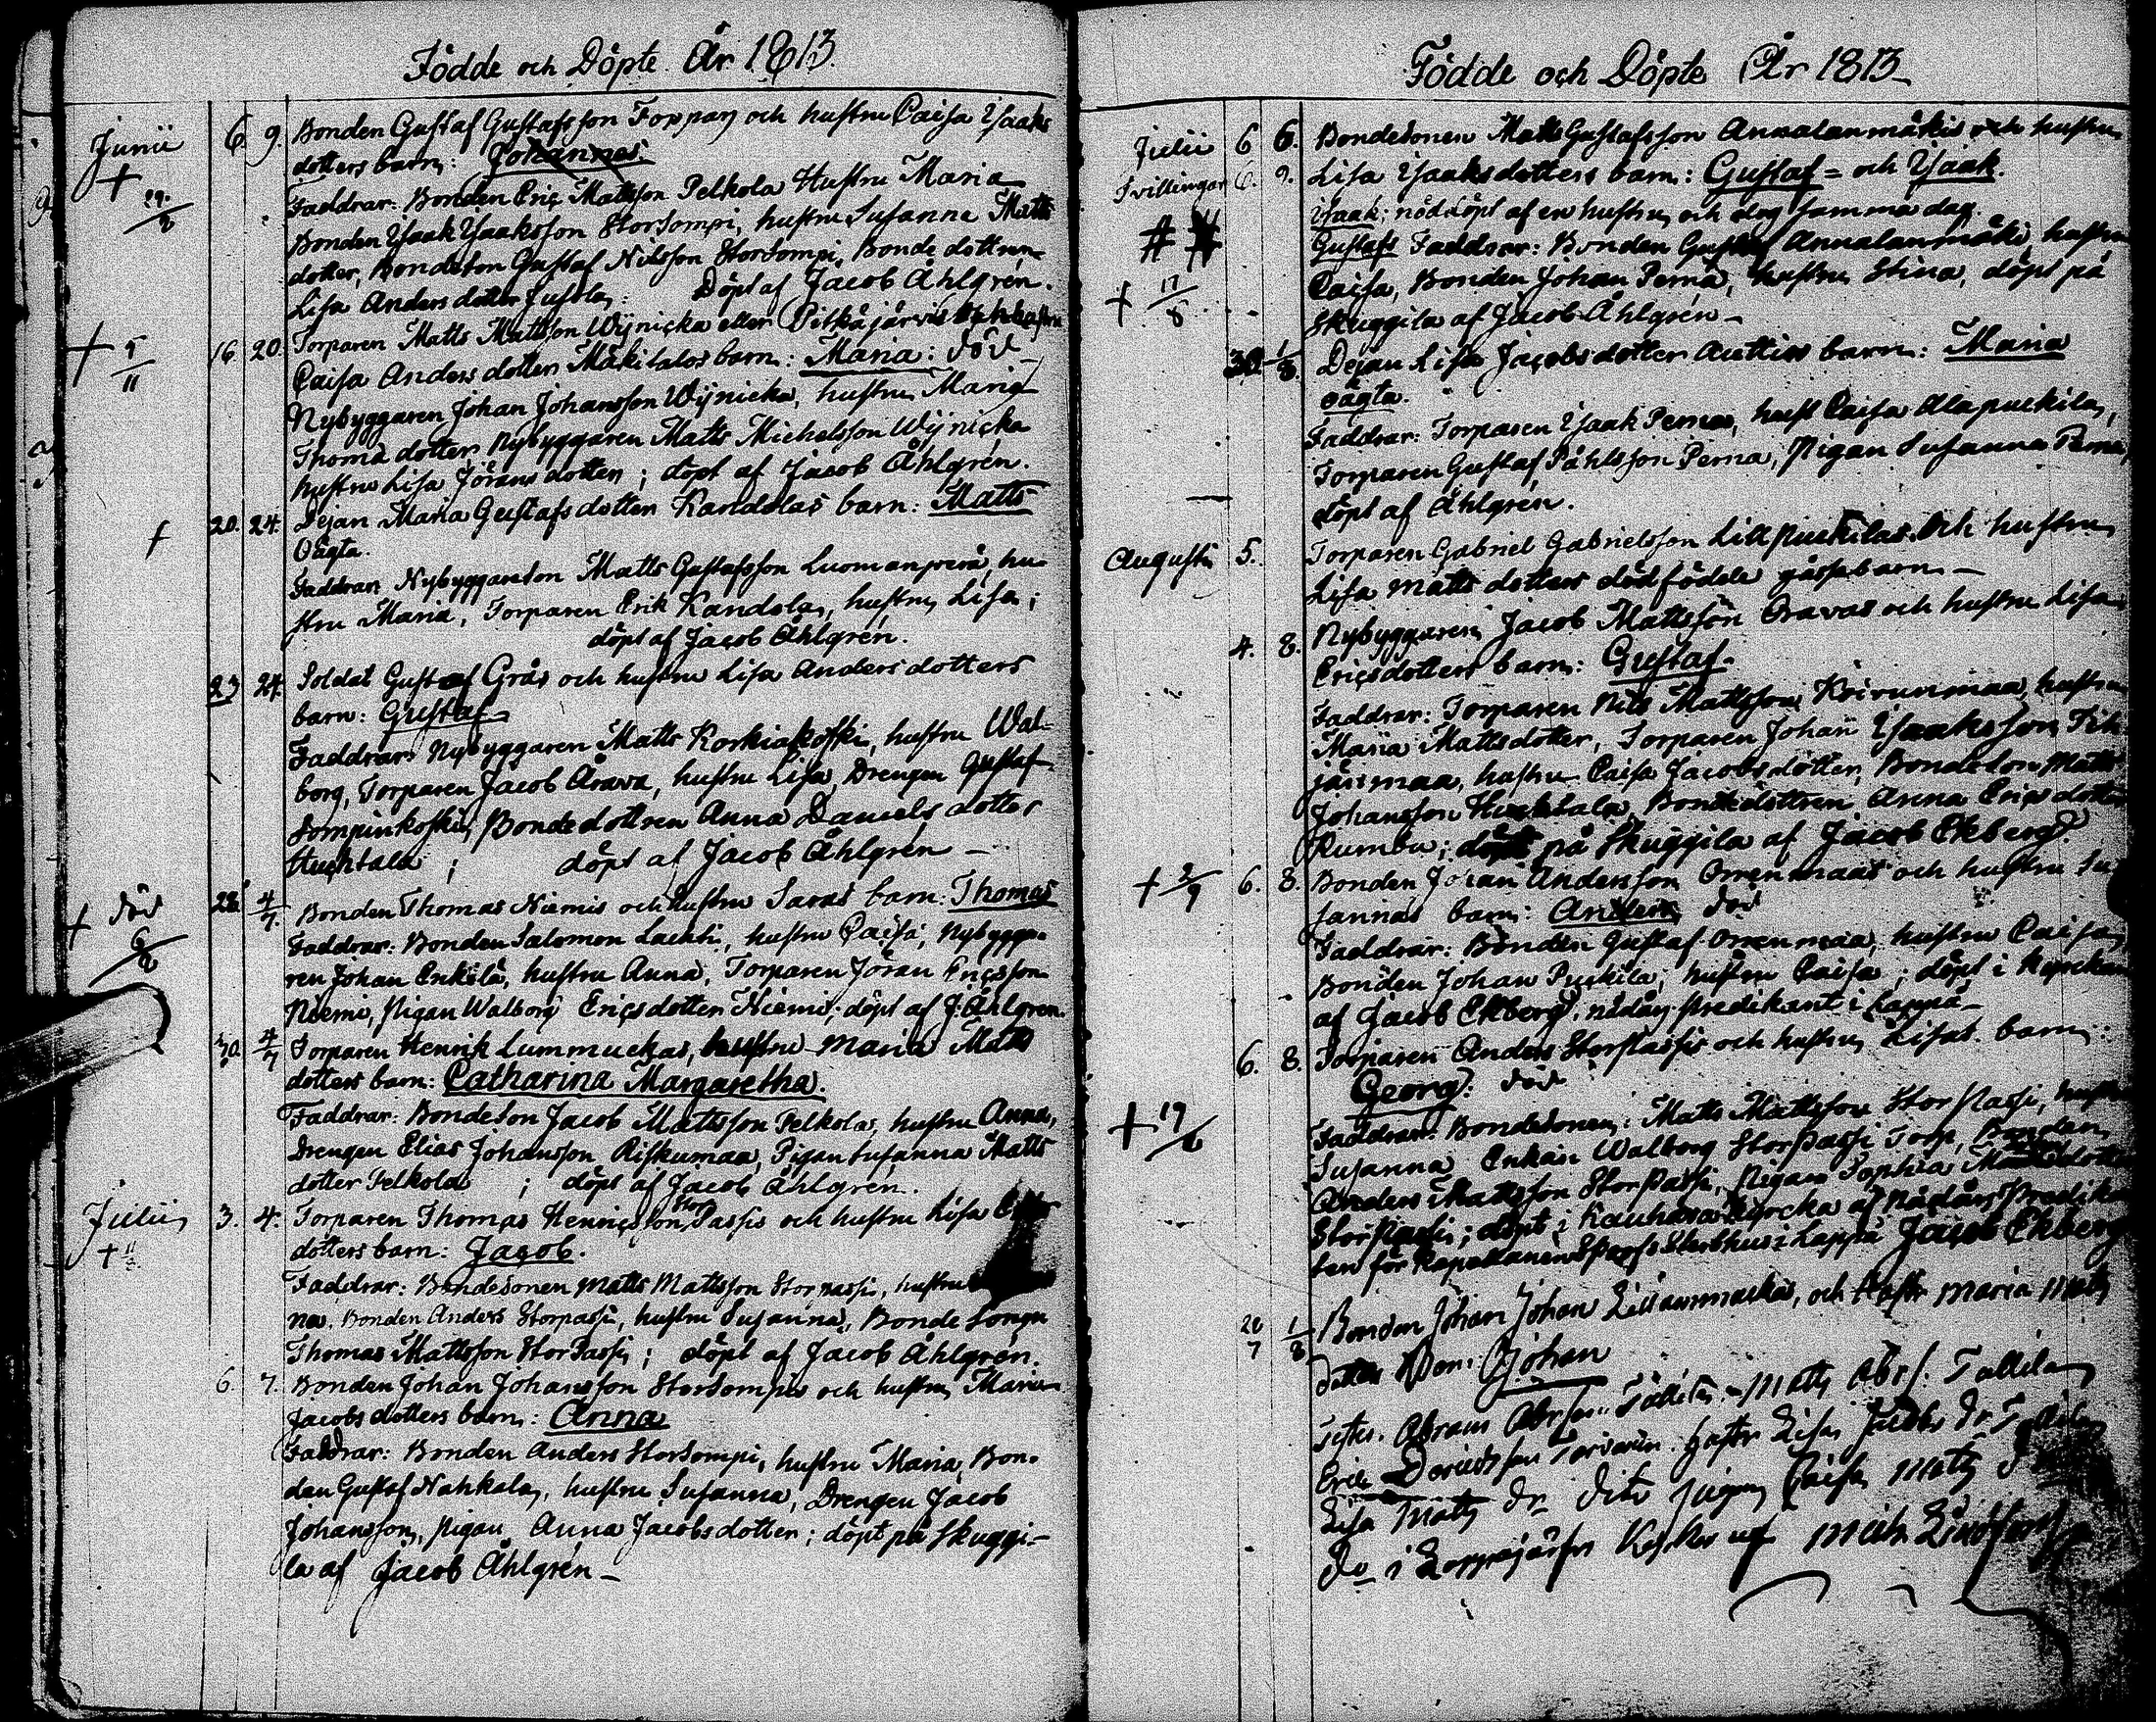 Födde och Döpte År 1813.
Junii 6. 9. Bonden Gustaf Gustafsson Foppas och hustru Caisa Ysaaks
dotters barn: Johannes.
+ 29/8 Faddrar: Bonden Eric Mattsson Pelkola Hustru Maria
Bonden Ysaak Ysaaksson Storsompi, hustru Susanna Matts
dotter, Bondeson Gustaf Nilsson Storsompi, Bonde dottren
Lisa Anders dotter Döpt af Jacob Åhlgrén.
+ 5/11 16. 20. Torparen Matts Mattsson Wijnicka eller Pitkäjärvis och hustru
Caisa Anders dotters Mäkitalos barn: Maria: död
Nybyggaren Johan Johansson Wijnicka, hustru Maria
Thomä dotter, Nybyggaren Matts Michelsson Wijnicka
hustru Lisa Jörans dotter; döpt af Jacob Åhlgrén.
+ 20. 24. Dejan Maria Gustafs dotter Kandolas barn: Matts
Oägta.
Faddrar: Nybyggareson Matts Gustafsson Luomanperä, hu-
stru Maria, Torparen Erik Kandola, hustru Lisa;
döpt af Jacob Åhlgrén.
23 24. Soldat Gustaf Grås och hustru Lisa Anders dotters
barn: Gustaf
Faddrar: Nybyggaren Matts Korkiakoski, hustru Wal-
borg, Torparen Jacob Årava, hustru Lisa, Drengen Gustaf
Sompinkoski, Bonde dottren Anna Daniels dotter
Huchtala; döpt af Jacob Åhlgrén —
+ död 6/2 28. 4/7. Bonden Thomas Niemis och hustru Saras barn: Thomas
Faddrar: Bonden Salomon Lachti, hustru Caisa, Nybygga-
ren Johan Enkilä, hustru Anna, Torparen Jöran Ericsson
Niemi, Pigan Walborg Ericsdotter Niemi; döpt af J. Åhlgren.
30. 4/7 Torparen Henrik Lummuckas, hustru Maria Matts
dotters barn: Catharina Margaretha.
Faddrar: Bondeson Jacob Mattsson Pelkola, hustru Anna,
Drengen Elias Johansson Riskumaa, Pigan Susanna Matts
dotter Pelkola; döpt af Jacob Åhlgrén.
Julii 3. 4. Torparen Thomas Henricsson Stor Passis och hustru Lisa
dotters barn: Jacob.
Faddrar: Bondesonen Matts Mattsson Storpassi, hustru
na, Bonden Anders Storpassi, hustru Susanna, Bonde Songn
Thomas Mattsson StorPassi; döpt af Jacob Åhlgren.
6. 7. Bonden Johan Johansson Storsompis och hustru Maria
Jacobs dotters barn: Anna
Faddrar: Bonden Anders Storsompi, hustru Maria, Bon-
den Gustaf Nahkala, hustru Susanna, Drengen Jacob
Johansson, Pigan Anna Jacobs dotter; döpt på Skuggi-
la af Jacob Åhlgrén —
Födde och Döpte År 1813
Julii 6 6. Bondesonen Matts Gustafsson Annalanmäkis och hustru
Tvillingar 6. 9. Lisa Ysaaksdotters barn: Gustaf = och Ysaak.
Ysaak; nöddöpt af en hustru och dog samma dag.
Gustafs Faddrar: Bonden Gustaf Annalanmäki, hustru
+ 17/8 Caisa, Bonden Johan Perna, hustru Stina, döpt på
Skuggila af Jacob Åhlgrén —
30. 1/8. Dejan Lisa Jacobsdotter barn: Maria
oägta.
Faddrar: Torparen Ysaak Pernas, hust Caisa Alapuckila,
Torparen Gustaf Påhlsson Perna, Pigan Susanna Perna,
döpt af Åhlgrén.
Augusti 5. Torparen Gabriel Gabrielsson Lillpuckilas och hustru
Lisa Matts dotters dödfödde gåssebarn —
4. 8. Nybyggaren Jacob Mattsson Oravas och hustru Lisa
Ericsdotters barn: Gustaf.
Faddrar: Torparen Nils Mattsson Koivunmaa, hustru
Maria Mattsdotter, Torparen Johan Ysaaksson
järimaa, hustru Caisa Jacobs dotter, Bondeson Matts
Johansson Huchtala, Bondedottren Anna Erics dotter
Rumbu; döpt på Skuggila af Jacob Ekberg
+ 2/9 6. 8. Bonden Johan Andersson Orrenmaas och hustru Su
sannas barn: Anders död
Faddrar: Bonden Gustaf Orrenmaa, hustru Caisa,
Bonden Johan Puckila, hustru Caisa; döpt i
af Jacob Ekberg, nådåᵣs predikant i Lappå —
6. 8. Torparen Anders Storpassis och hustru Lisas barn:
Georg: död
+ 19/6 Faddrar: Bondesonen: Matts Mattsson Stor Passi, hustru
Susanna Enkan Walborg StorPassi Torp, Bonden
Anders Mattsson StorPassi, Pigan Sophia Mattsdotter
StorPassi; döpt i Kauhava Kyrcka af Nådårs Predikan
ten för Kapellanens Sterbhus i Lappå Jacob Ekberg
20/7 1/8 Bonden Johan Johan och Hustr Maria Matts
dotter Son: Johan
Testes. Abram Abrsson Tallila, Matts Abrs. Tallila
Eric Hustr Lisa Jacobs Dr
Lisa Matts Dr Dito pigan Caisa Matts
Do i Lappajärfvi Kyrka af Mich Lindfors